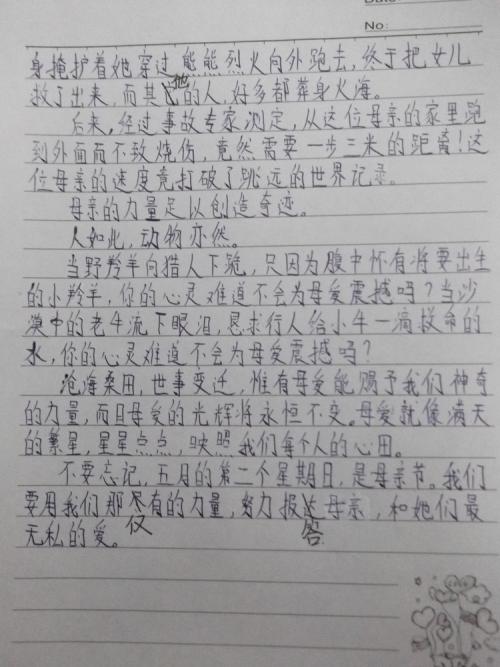 Date:
No:
身掩护着她穿过熊熊烈火向外跑去,终于把女儿
救了出来,而其他的人,好多都葬身火海。
后来,经过事故专家测定,从这位母亲的家里跑
到外面而不致烧伤,竟然需要一步三米的距离!这
位母亲的速度竟打破了跳远的世界记录。
母亲的力量足以创造奇迹。
人如此,动物亦然。
当野羚羊向猎人下跪,只因为腹中怀有将要出生
的小羚羊,你的心灵难道不会为母爱震撼吗?当沙
漠中的老牛流下眼泪,恳求行人给小牛一滴救命的
水,你的心灵难道不会为母爱震撼吗?
沧海桑田,世事变迁,惟有母爱能赐予我们神奇
的力量,而且母爱的光辉将永恒不变。母爱就像满天
的繁星,星星点点,映照我们每个人的心田。
不要忘记,五月的第二个星期日,是母亲节。我们
要用我们那仅有的力量,努力报答母亲,和她们最
无私的爱。